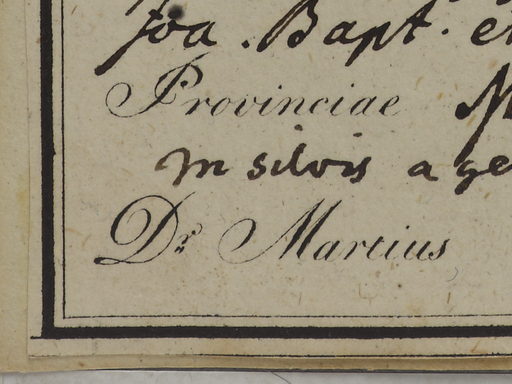 Joa. Bapt. et
Provinciae M
In silvis age
Dr. Martius